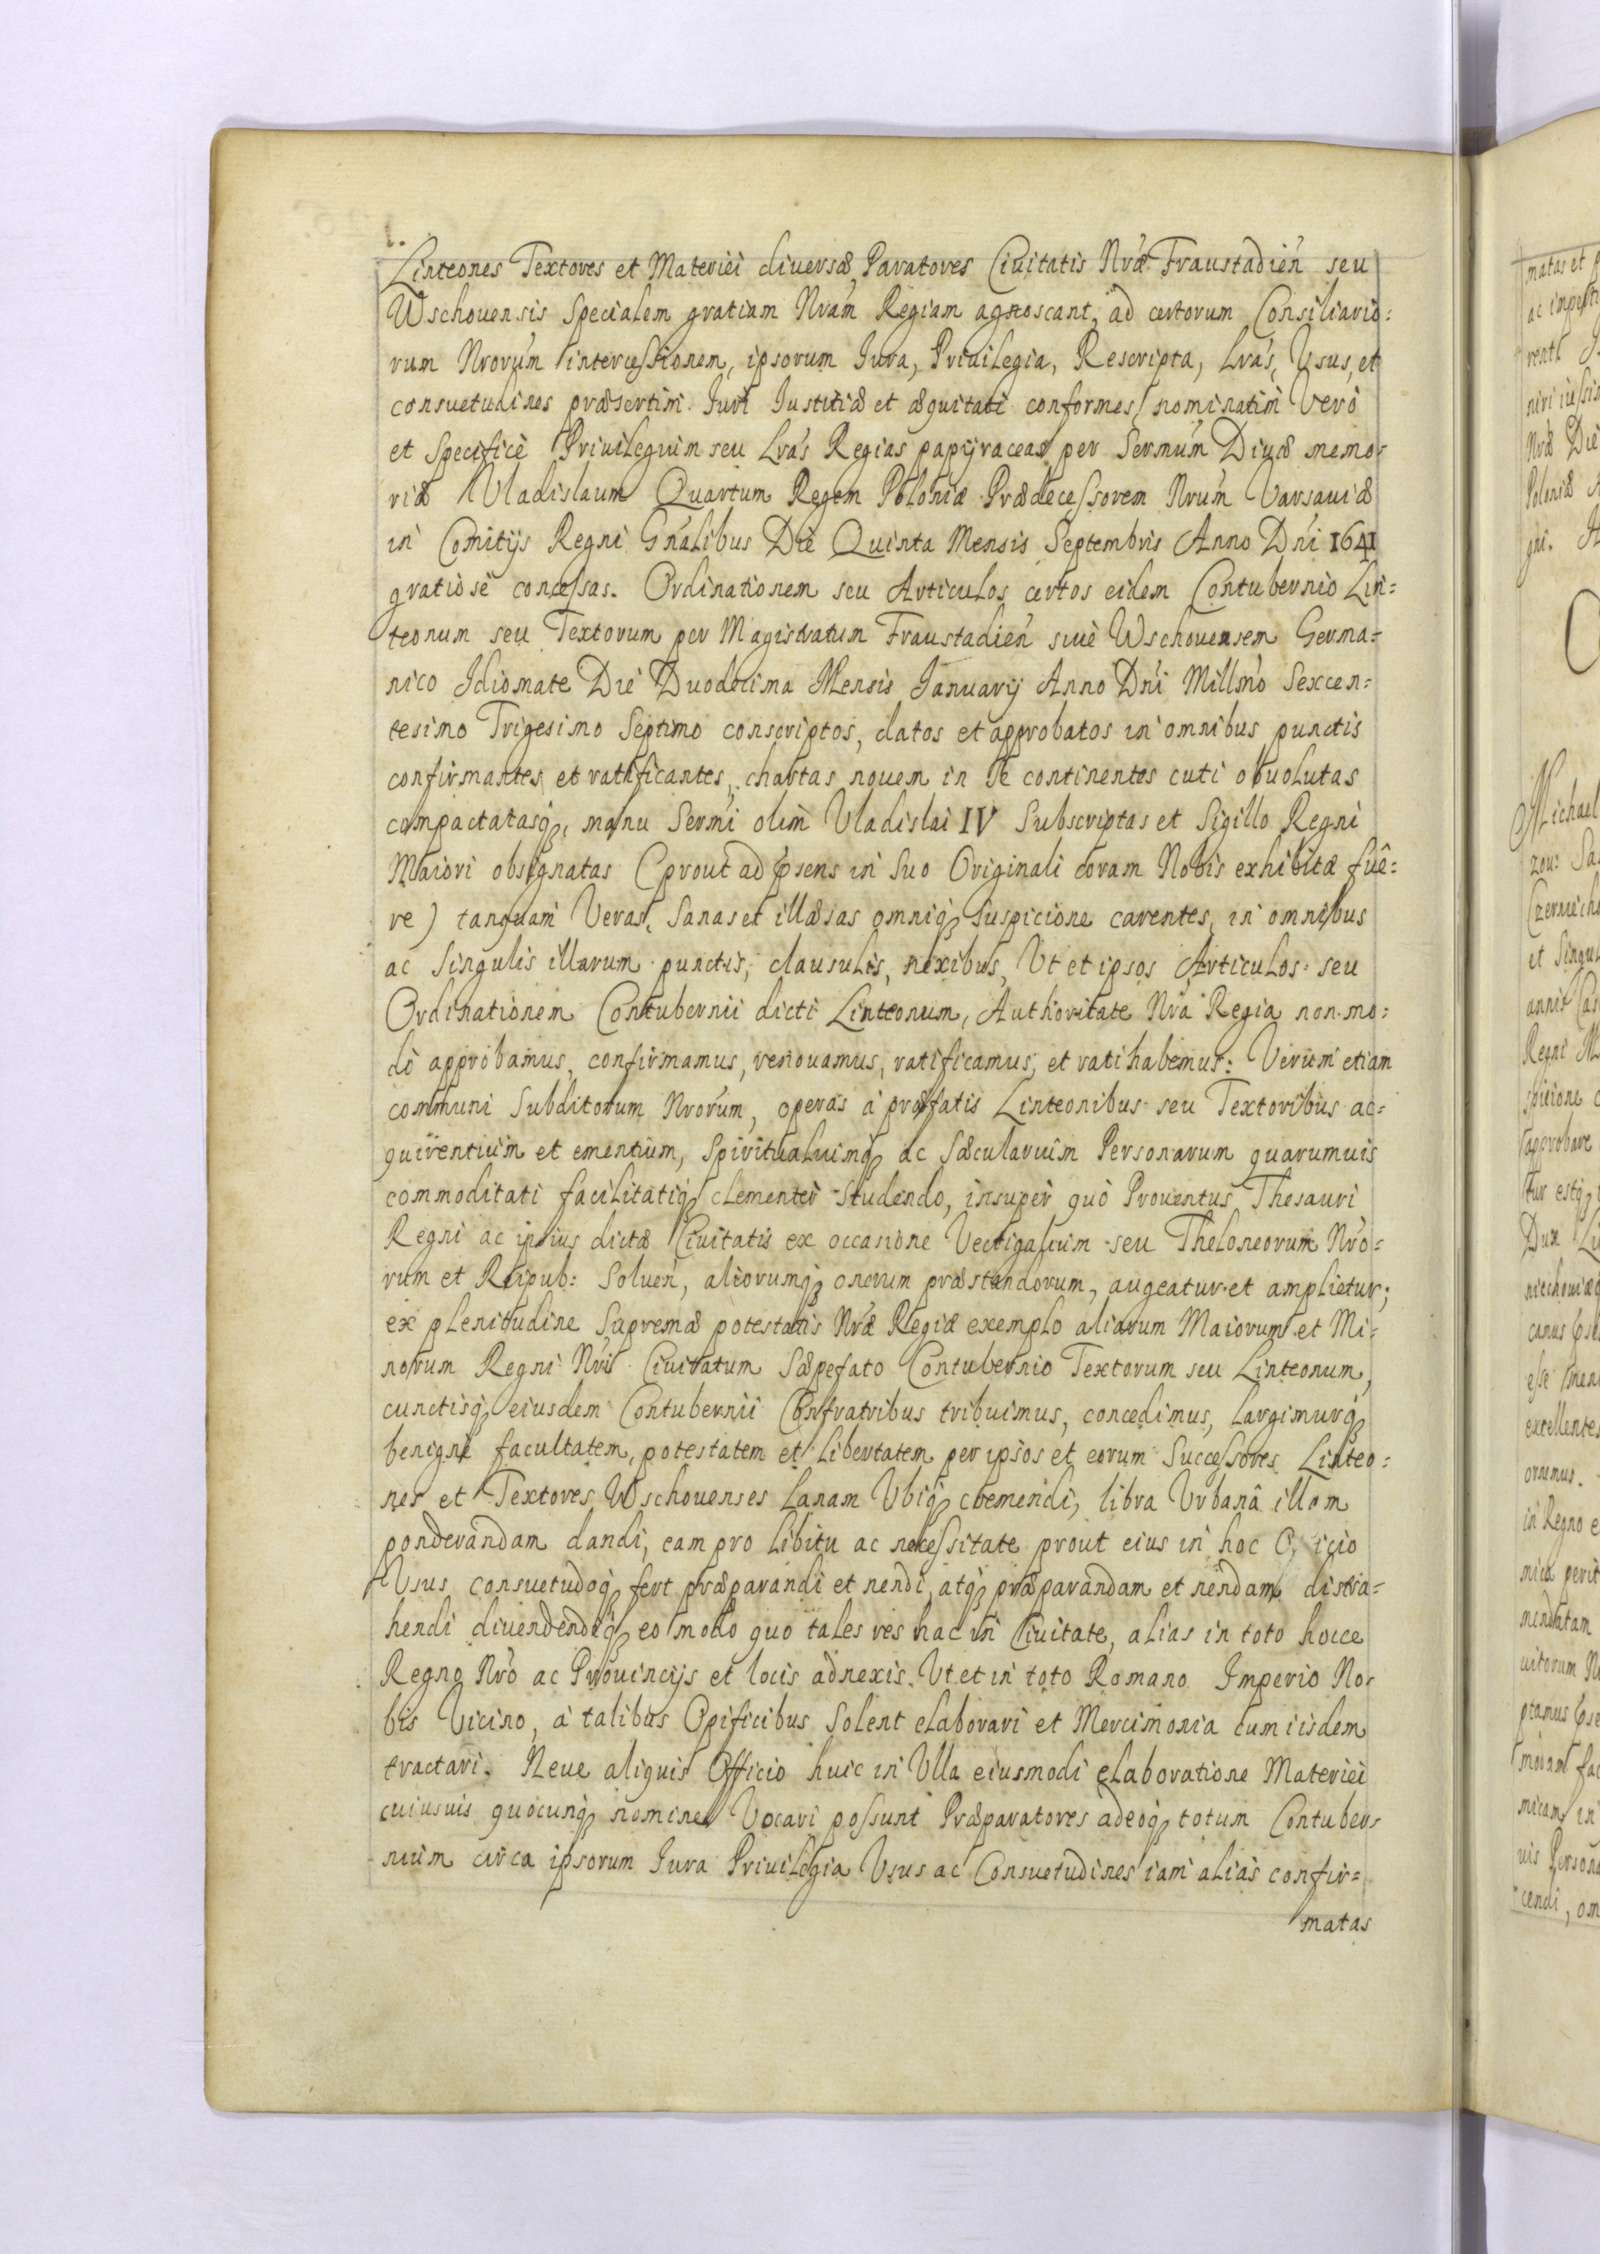 Linteones Textores et Materiei diuersæ Paratores Ciuitatis Nræ Fraustadień seu
Wschouensis Specialem gratiam Nram Regiam agnoscant, ad certorum Consiliario=
rum Nrorum intercessionem, ipsorum Iura, Priuilegia, Rescripta, Lras, Usus, et
consuetudines præsertim Iuri Iustitiæ et æquitati conformes, nominatim Verò
et Specificè Priuilegium seu Lras Regias papijraceas per Sermum Diuæ memo=
riæ Uladislaum Quartum Regem Poloniæ Prædecessorem Nrum Varsauiæ
in Comitijs Regni Gnalibus Die Quinta Mensis Septembris Anno Dni 1641
gratiosè concessas. Ordinationem seu Articulos certos eidem Contubernio Lin=
teonum seu Textorum per Magistratum Fraustadień siuè Wschouensem Germa=
nico Idiomate Die Duodecima Mensis Januarij Anno Dni Millmo Sexcen=
tesimo Trigesimo Septimo conscriptos, datos et approbatos in omnibus punctis
confirmantes et ratificantes, chartas nouem in se continentes cuti obuolutas
compactatasq3, manu Sermi olim Uladislai IV Subscriptas et Sigillo Regni
Maiori obsignatas (prout ad psens in Suo Originali coram Nobis exhibitæ fuê=
re) tanquam Veras, Sanas et illæsas omniq3 Suspicione carentes, in omnibus
ac Singulis illarum punctis, clausulis, nexibus, Ut et ipsos Articulos seu
Ordinationem Contubernii dicti Linteonum, Authoritate Nra Regia non mo=
do approbamus, confirmamus, renouamus, ratificamus, et ratihabemus: Verum etiam
communi Subditorum Nrorum, operas à præfatis Linteonibus seu Textoribus ac=
quirentium et ementium, Spiritualiumq3 ac Sæcularium Personarum quarumuis
commoditati facilitatiq3 clementer Studendo, insuper quò Prouentus Thesauri
Regni ac ipsius dictæ Ciuitatis ex occasione Vectigalium seu Theloneorum Nro=
rum et Reipub: Soluen, aliorumq3 onerum præstandorum, augeatur et amplietur;
ex plenitudine Supremæ potestatis Nræ Regiæ exemplo aliarum Maiorum et Mi=
norum Regni Nri Ciuitatum Sæpefato Contubernio Textorum seu Linteonum,
cunctisq3 eiusdem Contubernii Confratribus tribuimus, concedimus, largimurq3
benigne facultatem, potestatem et libertatem per ipsos et eorum Successores Linteo=
nes et Textores Wschouenses Lanam Ubiq3 coemendi, libra Urbanâ illam
ponderandam dandi, eam pro libitu ac necessitate prout eius in hoc
Usus consuetudoq3 fert præparandi et nendi, atq3 præparandam et nendam distra=
hendi diuendendiq3 eo modo quo tales res hac in Ciuitate, alias in toto hocce
Regno Nro ac Prouincijs et locis adnexis. Ut et in toto Romano Imperio No=
bis Vicino, à talibus Opificibus Solent elaborari et Mercimonia cum iisdem
tractari. Neue aliquis Officio huic in Ulla eiusmodi elaboratione Materiei
cuiusuis quocunq3 nomine Vocari possunt Præparatores adeoq3 totum Contuber=
nium circa ipsorum Iura Priuilegia Usus ac Consuetudines iam aliàs confir=
matas